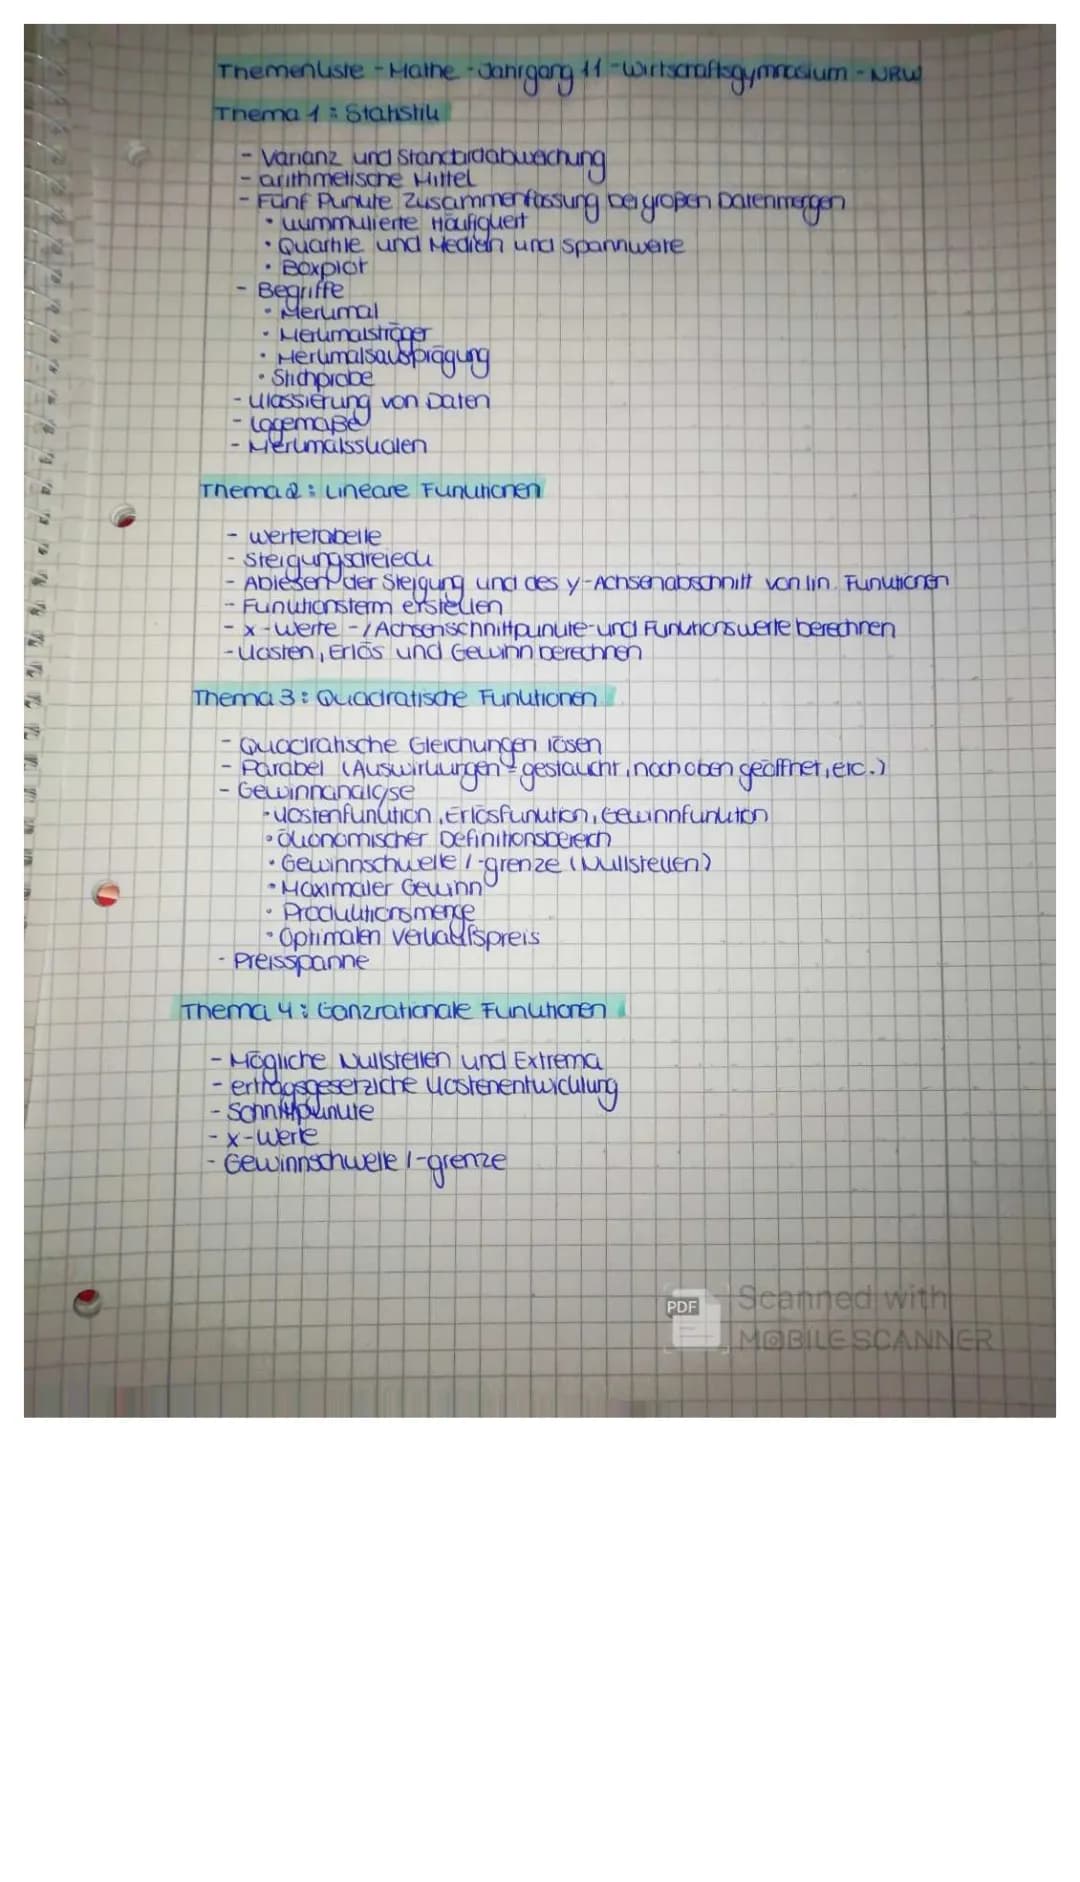 Themenliste - Mathe - Jahrgang 11 - Wirtschaftsgymnasium - NRW
Thema 1: Statistik
- Varianz und Standardabweichung
- arithmetische Mittel
- Fünf Punkte Zusammenfassung bei großen Datenmengen
• kummulierte Häufigkeit
• Quartile und Median und Spannweite
• Boxplot
- Begriffe
• Merkmal
• Merkmalsträger
• Merkmalsausprägung
• Stichprobe
- Klassierung von Daten
- Lagemaße
- Merkmalsskalen
Thema 2: Lineare Funktionen
- Wertetabelle
- Steigungsdreieck
- Ablesen der Steigung und des y-Achsenabschnitt von lin. Funktionen
- Funktionsterm erstellen
- x-Werte -/Achsenschnittpunkte- und Funktionswerte berechnen
- Kosten, Erlös und Gewinn berechnen
Thema 3: Quadratische Funktionen
- Quadratische Gleichungen lösen
- Parabel (Auswirkungen = gestaucht, nach oben geöffnet, etc.)
- Gewinnanalyse
• Kostenfunktion, Erlösfunktion, Gewinnfunktion
• Ökonomischer Definitionsbereich
• Gewinnschwelle /-grenze (Nullstellen)
• Maximaler Gewinn
• Produktionsmenge
• Optimalen Verkaufspreis
- Preisspanne
Thema 4: Ganzrationale Funktionen
- Mögliche Nullstellen und Extrema
- ertragsgesetzliche Kostenentwicklung
- Schnittpunkte
- x-Werte
- Gewinnschwelle /-grenze
PDF
Scanned with
MOBILE SCANNER